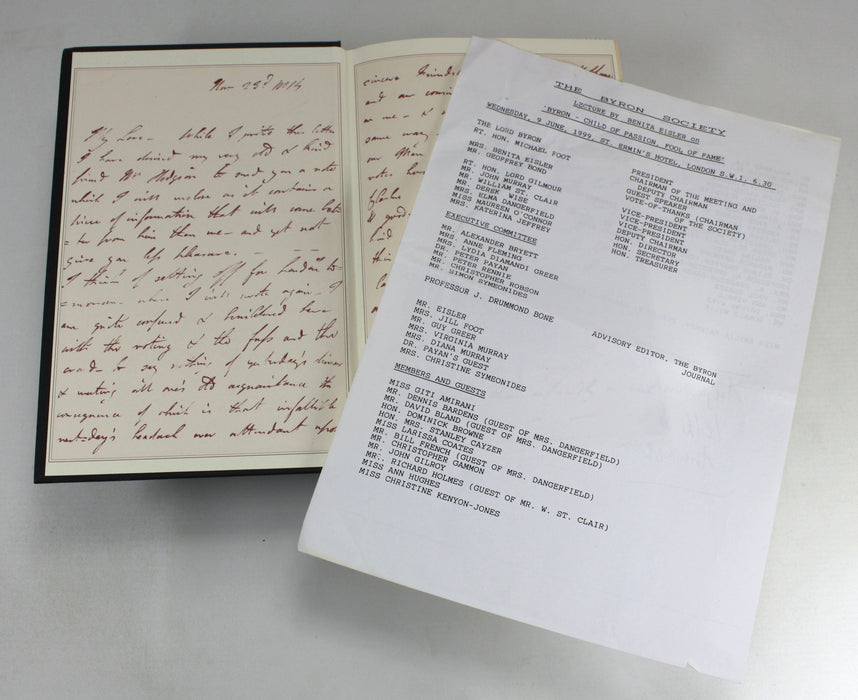 Nov 23d 1814
My Love - While I write this letter
I have desired my very old & kind
friend Mr Hodgson to send you a note
which I will enclose as it contains a
piece of information that will come bet
= ter from him than me - and yet not
give you less pleasure. -
I think of setting off for London to
= morrow - where I will write again - I
am quite confused & bewildered here
with the voting & the fuss and the
crowd - to say nothing of yesterday's dinner
& meeting all one's old acquaintance the
consequence of which is that infallible
next-day's headach ever attendant upon
sincere
and our
on me - &
same way
our
THE BYRON SOCIETY
LECTURE BY BENITA EISLER on
'BYRON - CHILD OF PASSION, FOOL OF FAME'
WEDNESDAY, 9 JUNE, 1999, ST. ERMIN'S HOTEL, LONDON S.W.1. 6.30
THE LORD BYRON
RT. HON. MICHAEL FOOT
MRS. BENITA EISLER
MR. GEOFFREY BOND
RT. HON. LORD GILMOUR
MR. JOHN MURRAY
MR. WILLIAM ST. CLAIR
MR. DEREK WISE
MRS. ELMA DANGERFIELD
MISS MAUREEN O'CONNOR
MRS. KATERINA JEFFREY
PRESIDENT OF THE MEETING AND
CHAIRMAN OF THE SOCIETY)
DEPUTY CHAIRMAN
GUEST SPEAKER
VOTE-OF-THANKS (CHAIRMAN
VICE-PRESIDENT
VICE-PRESIDENT
VICE-PRESIDENT
DEPUTY CHAIRMAN
HON. DIRECTOR
HON. SECRETARY
HON. TREASURER
EXECUTIVE COMMITTEE
MR. ALEXANDER BRYETT
MRS. ANNE FLEMING
DR. LYDIA DIAMANDI GREER
MR. PETER PAYAN
MR. PETER RENNIE
MR. CHRISTOPHER ROBSON
MR. SIMON SYMEONIDES
PROFESSOR J. DRUMMOND BONE
ADVISORY EDITOR, THE BYRON
JOURNAL
MR. EISLER
MRS. JILL FOOT
MR. GUY GREER
MRS. VIRGINIA MURRAY
MRS. DIANA MURRAY
DR. PAYAN'S GUEST
MRS. CHRISTINE SYMEONIDES
MEMBERS AND GUESTS
MISS GITI AMIRANI
MR. DENNIS BARDENS (GUEST OF MRS. DANGERFIELD)
MR. DAVID BLAND (GUEST OF MRS. DANGERFIELD)
HON. DOMINICK BROWNE
HON. MRS. STANLEY CAYZER
MISS LARISSA COATES
MR. BILL FRENCH (GUEST OF MRS. DANGERFIELD)
MR. CHRISTOPHER GAMMON
MR. JOHN GILROY
MR. RICHARD HOLMES (GUEST OF MR. W. ST. CLAIR)
MISS ANN HUGHES
MISS CHRISTINE KENYON-JONES